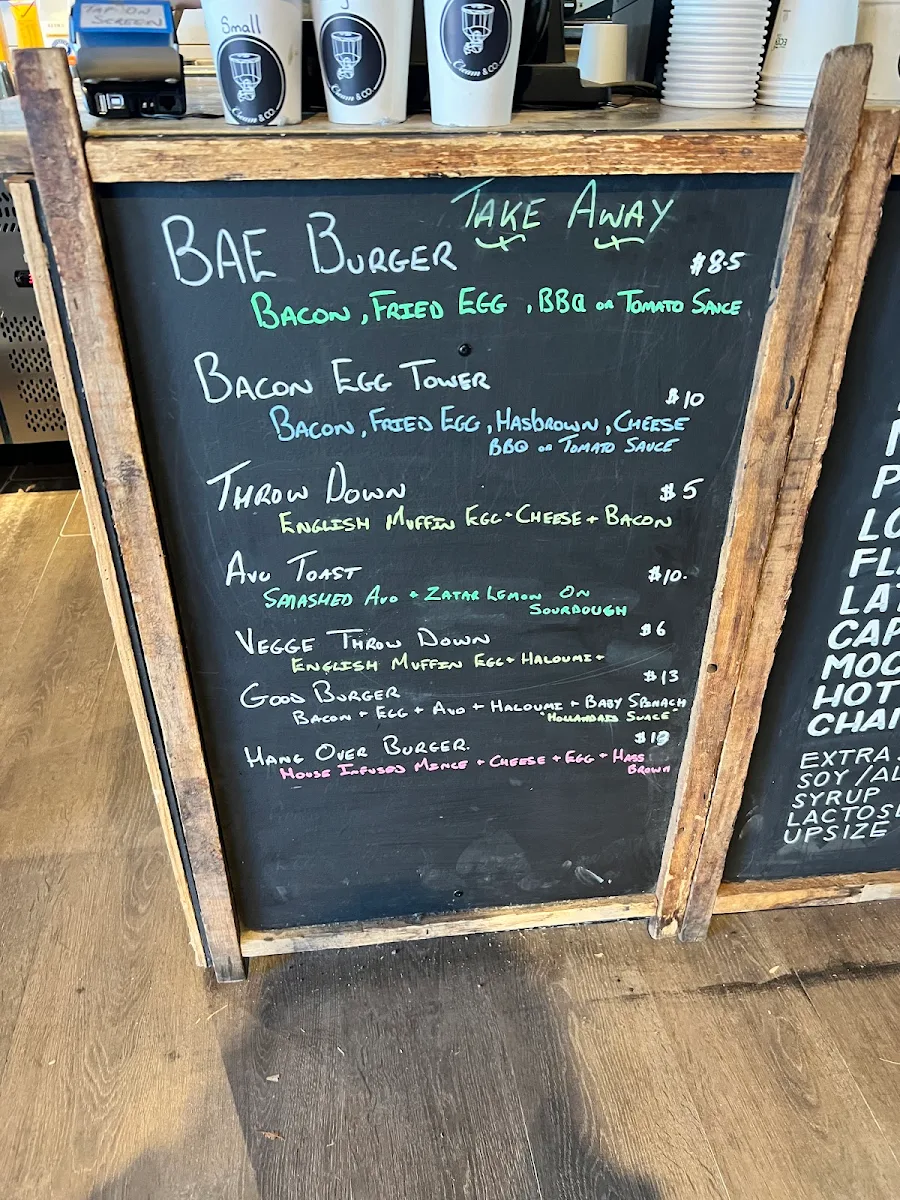 TAP ON
SCREEN
Small
Cream & Co.
Cream & Co.
Cream & Co.
TAKE AWAY
BAE BURGER $8.5
BACON, FRIED EGG, BBQ OR TOMATO SAUCE
BACON EGG TOWER $10
BACON, FRIED EGG, HASBROWN, CHEESE
BBQ OR TOMATO SAUCE
THROW DOWN $5
ENGLISH MUFFIN EGG + CHEESE + BACON
AVO TOAST $10.
SMASHED AVO + ZATAR LEMON ON
SOURDOUGH
VEGGE THROW DOWN $6
ENGLISH MUFFIN EGG + HALOUMI +
GOOD BURGER $13
BACON + EGG + AVO + HALOUMI + BABY SPINACH
"HOLLANDAIS SUACE"
HANG OVER BURGER.
HOUSE INFUSED MINCE + CHEESE + EGG + HASS
BROWN
EXTRA
SOY/AL
SYRUP
LACTOSE
UPSIZE